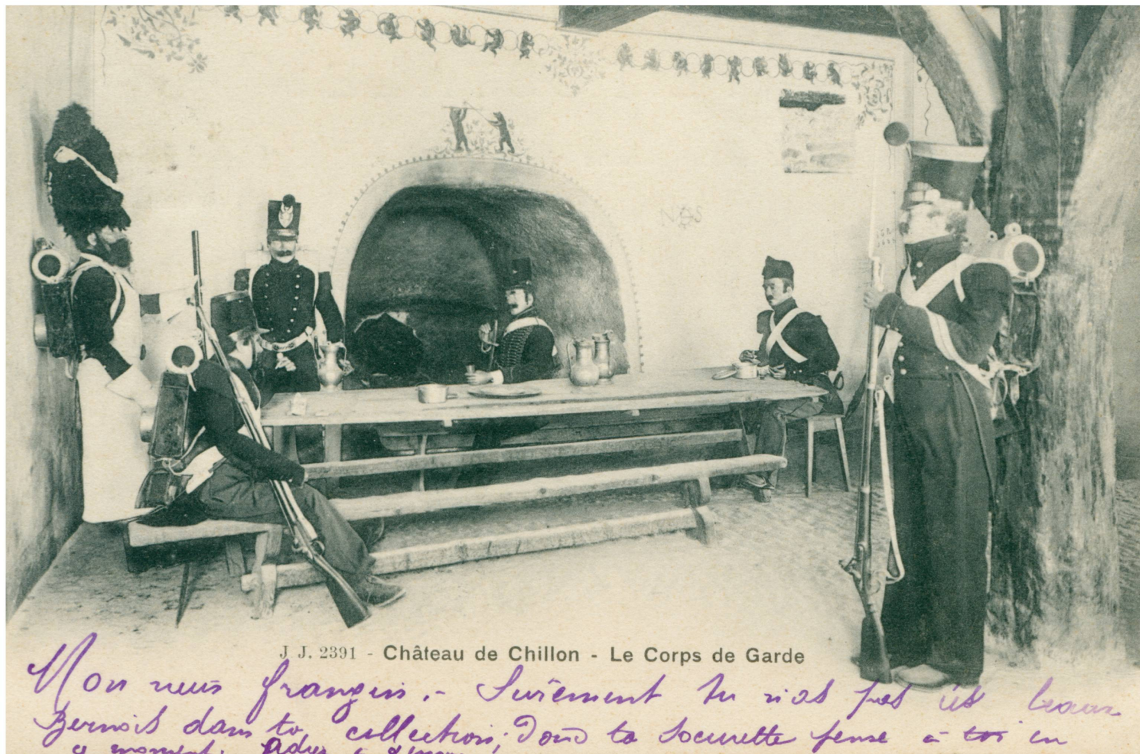 J J. 2391 - Château de Chillon - Le Corps de Garde
Mon frangin. - Surement tu n'as pas ces beaux
Bernois dans ta collection; Donc ta soeurette pense à toi en
ce moment.